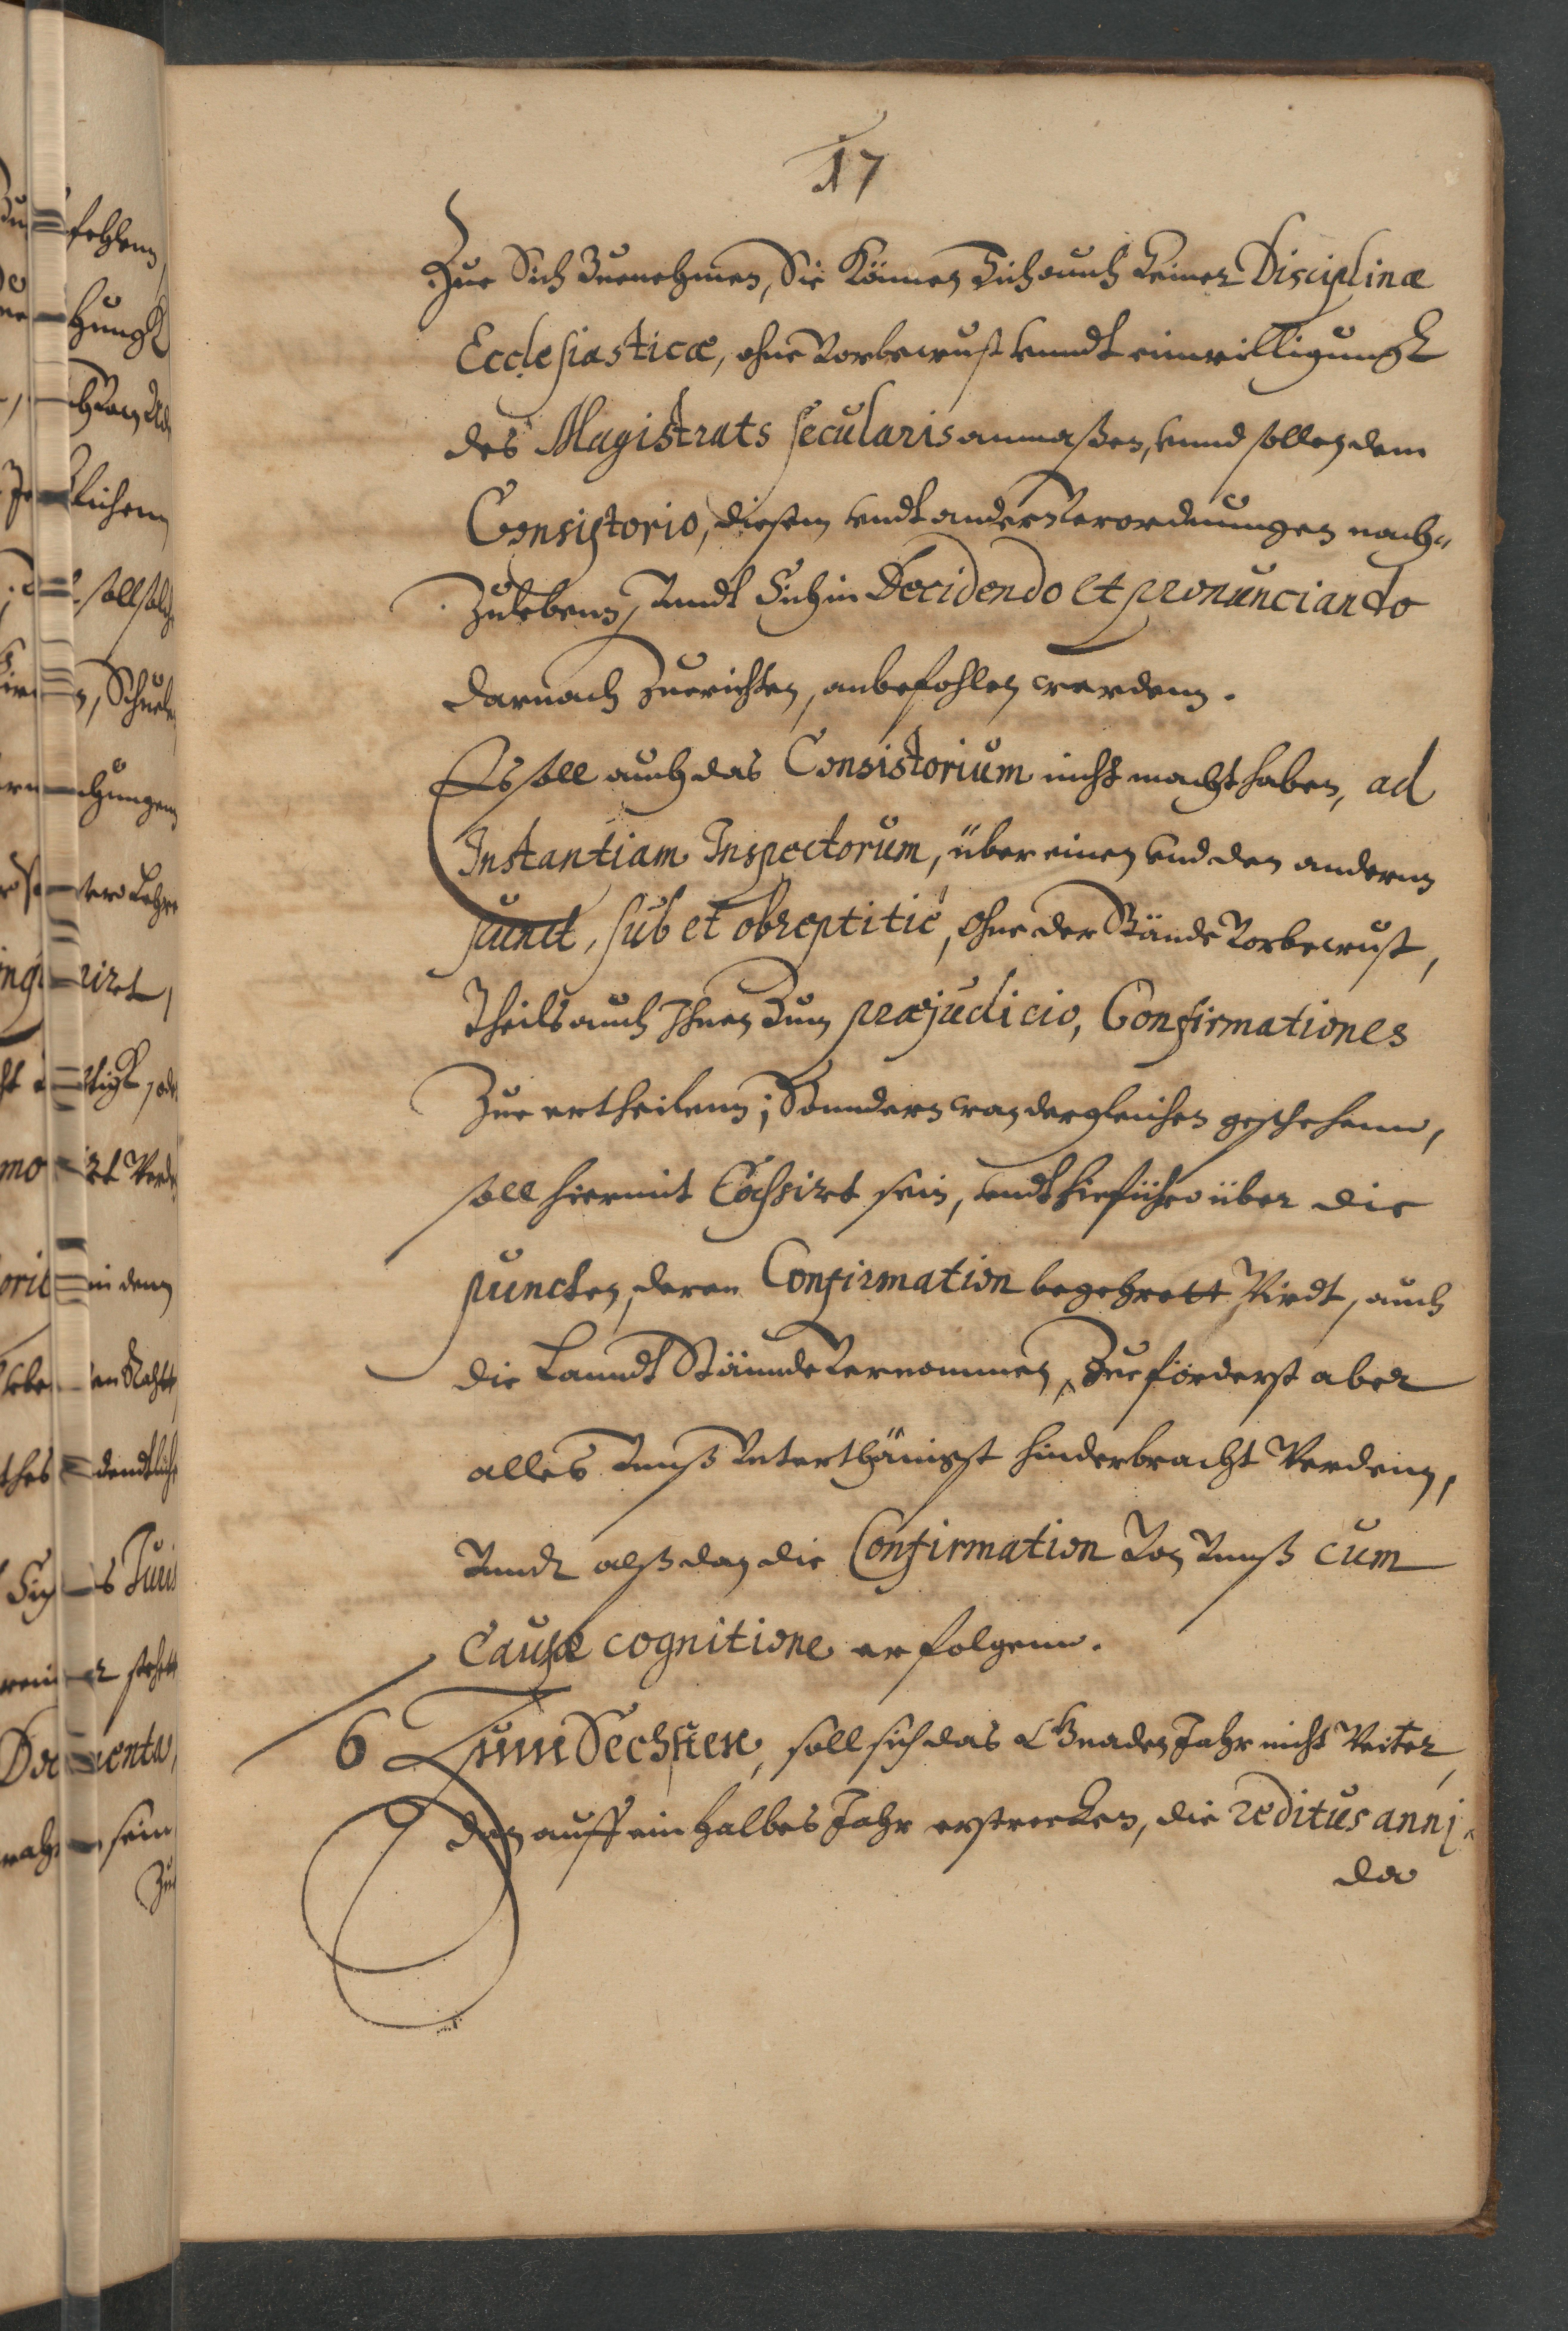 17
Zue Sich Zuenehmen, Sie Können Sich auch keiner Disciplinæ
Ecclesiasticæ, ohne Vorbewust vnndt einwilligungk
des Magistrats secularis anmaßen, vnnd sollen dem
Consistorio, diesem vndt andern Verordnungen nach-
Zulebenn, Vnndt Sich in Decidendo et pronunciando
darnach Zuerichten, anbefohlen werdenn.
Es soll auch das Consistorium nicht macht haben, ad
Instantiam Inspectorum, über einen vnd den andernn
punct, sub et obreptitiè, ohne der Stände Vorbewust,
Theils auch Ihnen Zum præjudicio, Confirmationes
Zue ertheilenn; Sonndern was dergleichen geschehenn,
soll hiermit Cassirt sein, vndt hinführo über die
puncten, deren Confirmation begehrett Wirdt, auch
die Lanndt Stännde Vernommen, Zueförderst aber
alles Vnnß Vnterthänigst hinderbracht Werdenn,
Vnndt alß dan die Confirmation Von Vnnß cum
Causæ cognitione erfolgenn.
6 Zum Sechsten, soll sich das Gnaden Jahr nicht Weiter,
dan auff ein halbes Jahr erstrecken, die reditus anni,
da
fehlenn,
hungk
lichenn
soll solche
Schuelen
chungenn
irt,
in denn
sein
Zue